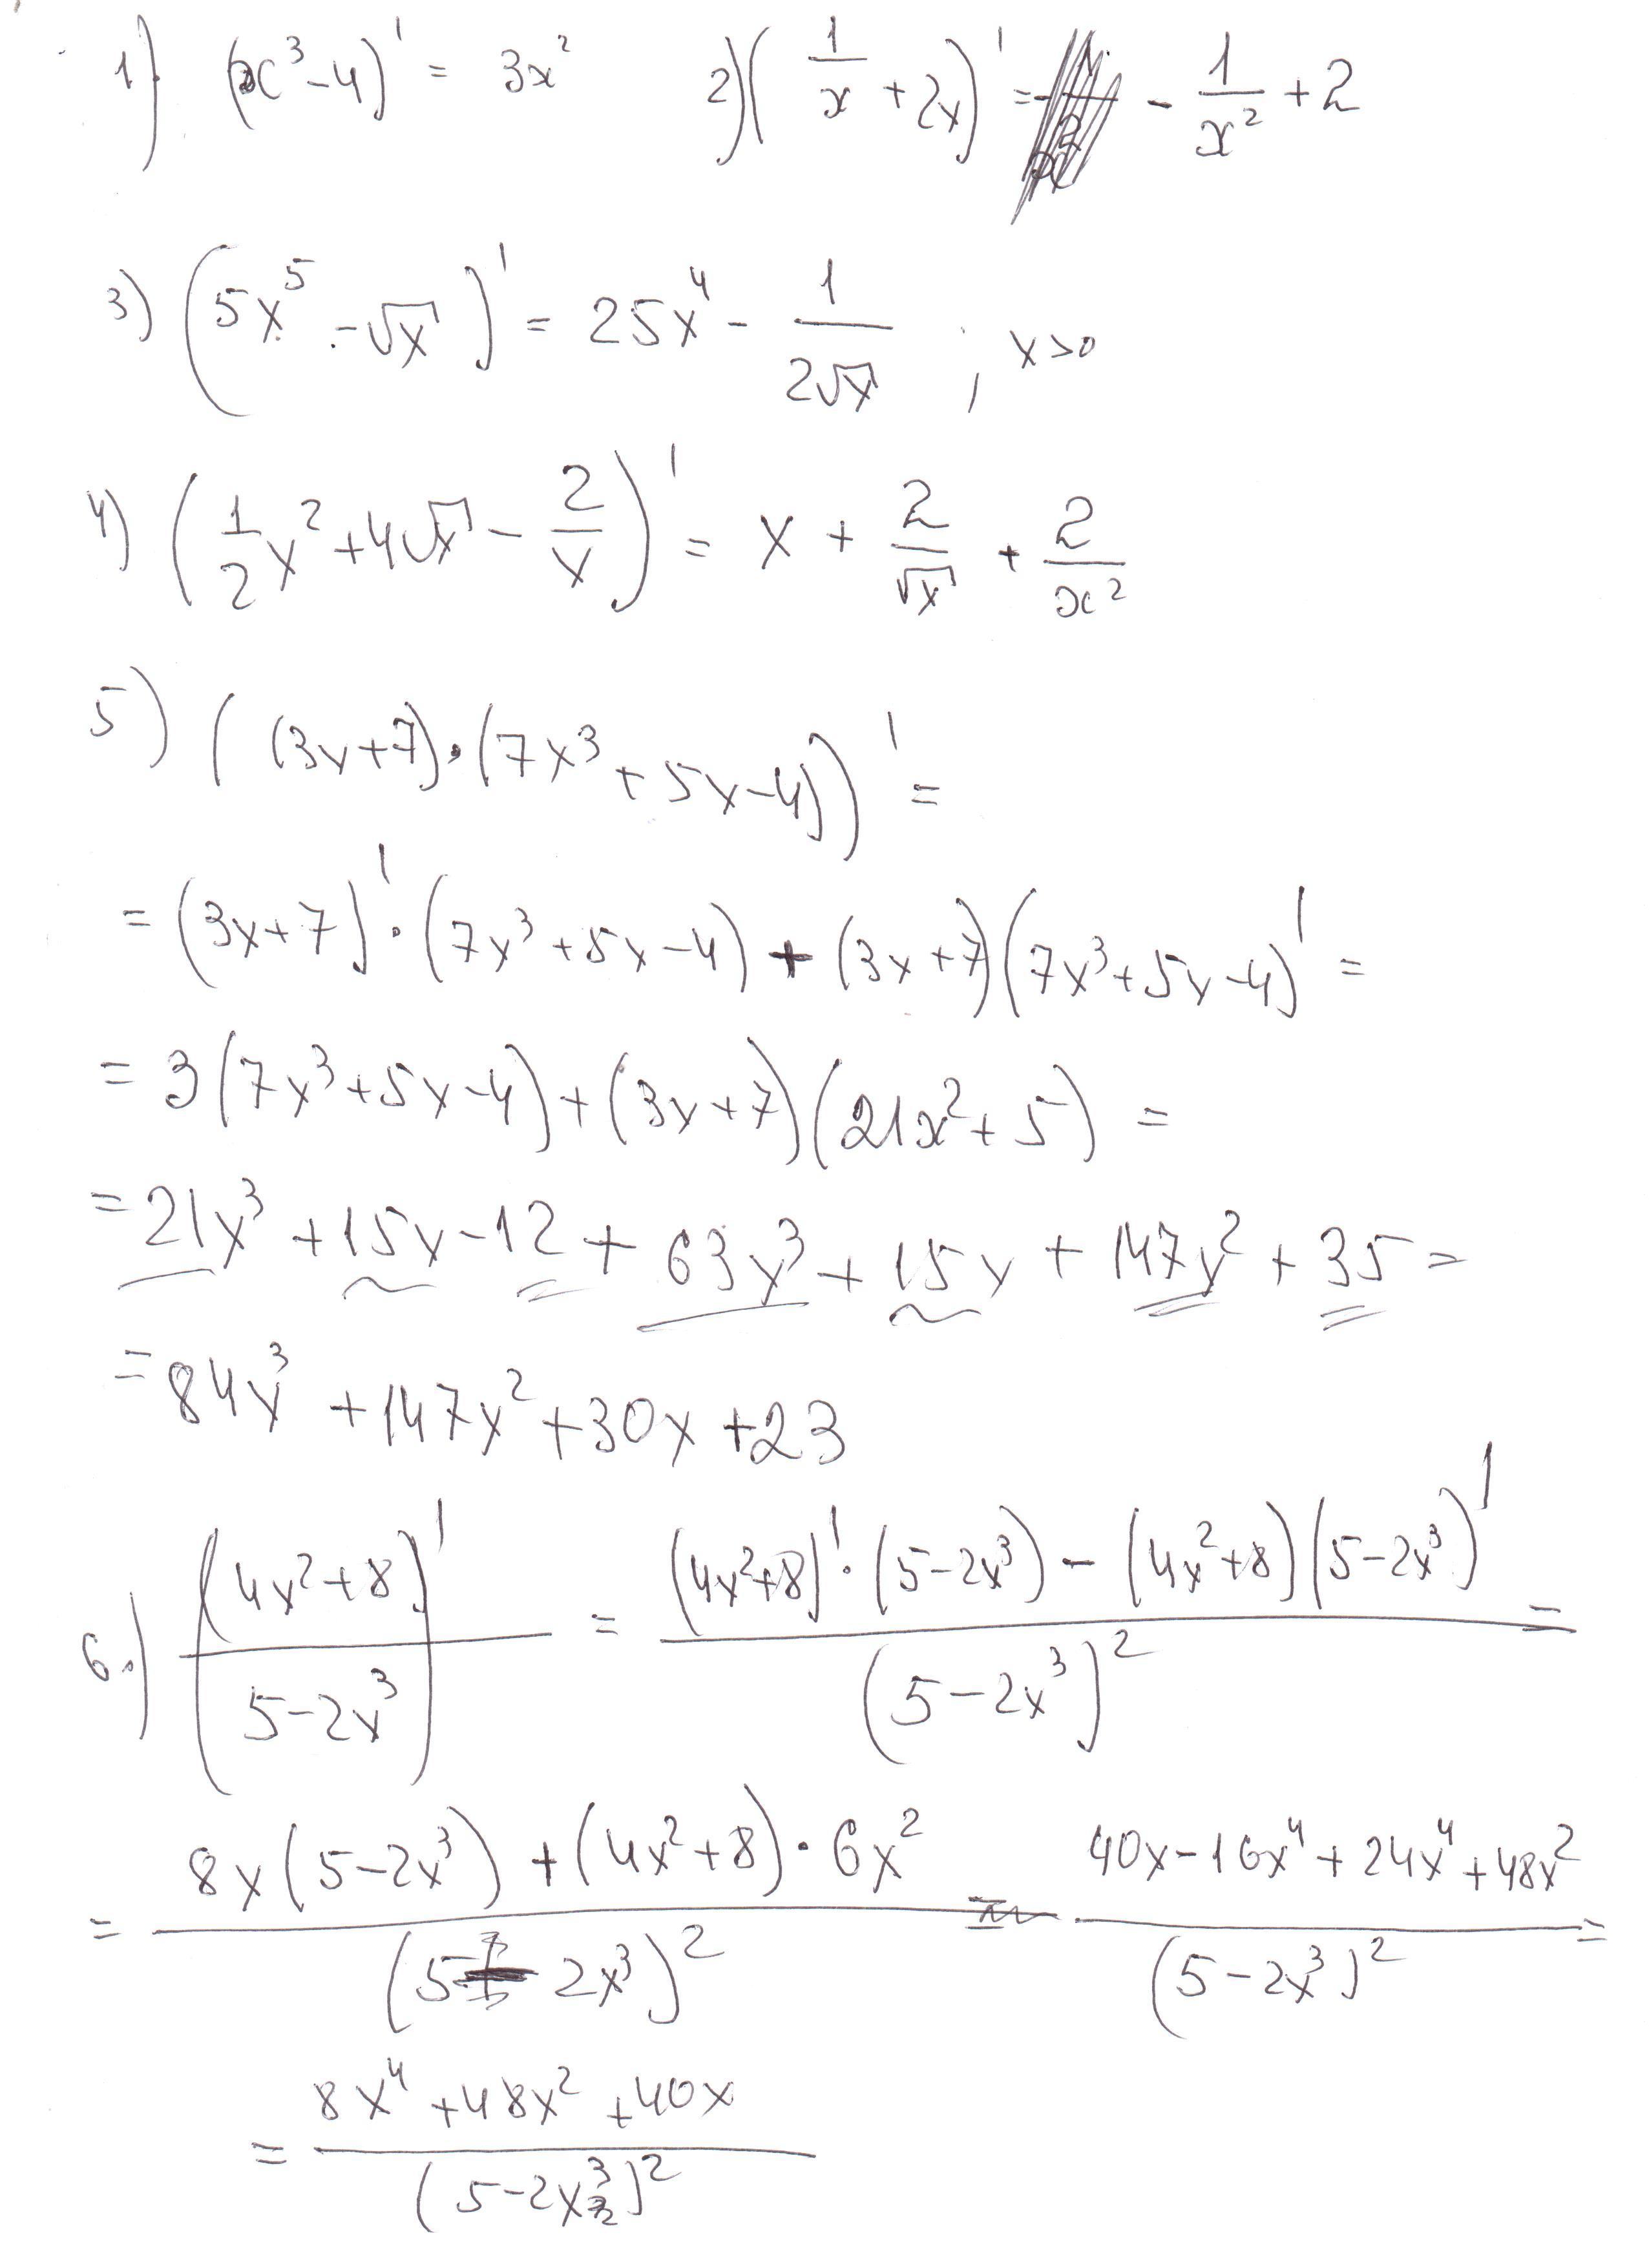 1) (x³-4)' = 3x² 2) (1/x + 2x)' = - 1/x² + 2
3) (5x⁵ - √x)' = 25x⁴ - 1/(2√x) ; x>0
4) (1/2 x² + 4√x - 2/x)' = x + 2/√x + 2/x²
5) ((3x+7)·(7x³+5x-4))' =
= (3x+7)'·(7x³+5x-4) + (3x+7)(7x³+5x-4)' =
= 3(7x³+5x-4) + (3x+7)(21x²+5) =
= 21x³ + 15x - 12 + 63x³ + 15x + 147x² + 35 =
= 84x³ + 147x² + 30x + 23
6.) ((4x²+8)/(5-2x³))' = ((4x²+8)'·(5-2x³) - (4x²+8)(5-2x³)')/(5-2x³)² =
= (8x(5-2x³) + (4x²+8)·6x²)/(5-2x³)² = (40x-16x⁴+24x⁴+48x²)/(5-2x³)² =
= (8x⁴+48x²+40x)/(5-2x³)²